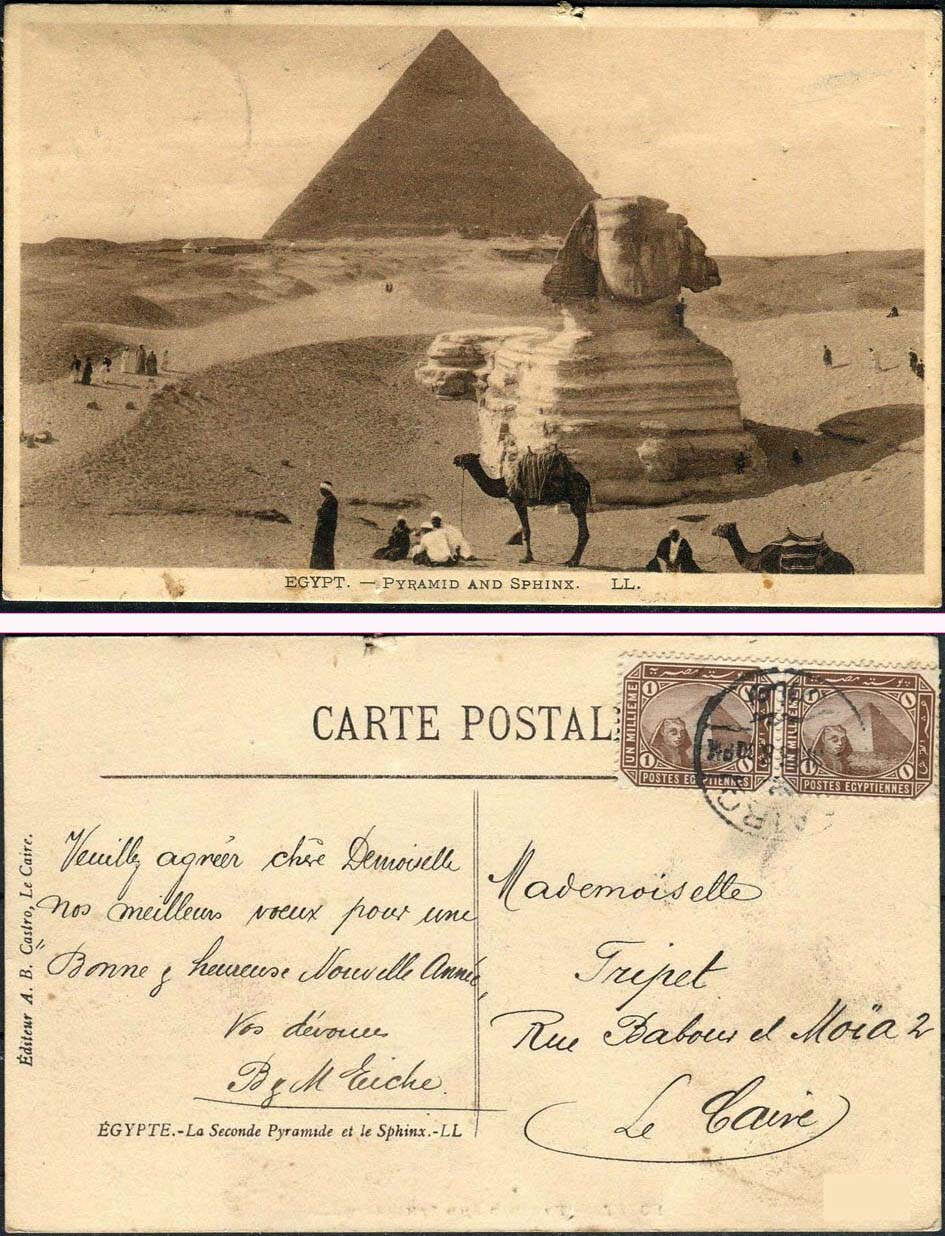 EGYPT. — PYRAMID AND SPHINX. LL.
CARTE POSTAL
UN MILLIEME
1
1
POSTES EGYPTIENNES
بوستة مصر
UN MILLIEME
1
1
POSTES EGYPTIENNES
بوستة مصر
Éditeur A. B. Castro, Le Caire.
Veuillez agréer chère Demoiselle
nos meilleurs voeux pour une
"Bonne & heureuse Nouvelle Année,
Vos dévoues
B & M Eiche.
ÉGYPTE.-La Seconde Pyramide et le Sphinx.-LL
Mademoiselle
Tripet
Rue Babour el Moïa 2
Le Caire